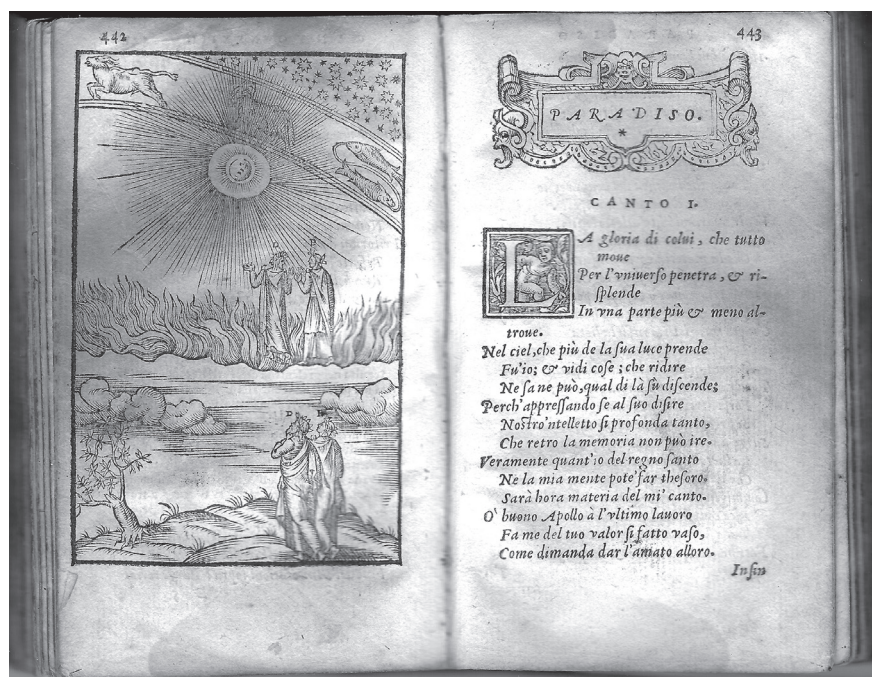 442
D B
D B
443
PARADISO.
*
CANTO I.
LA gloria di colui, che tutto
moue
Per l'vniuerſo penetra, & ri-
ſplende
In vna parte più & meno al-
troue.
Nel ciel, che più de la ſua luce prende
Fu'io; & vidi coſe; che ridire
Ne ſa ne può, qual di là ſù diſcende;
Perch'appreſſando ſe al ſuo diſire
Noſtro'ntelletto ſi profonda tanto,
Che retro la memoria non può ire.
Veramente quant'io del regno ſanto
Ne la mia mente pote' far theſoro.
Sarà hora materia del mi' canto.
O' buono Apollo à l'vltimo lauoro
Fa me del tuo valor ſi fatto vaſo,
Come dimanda dar l'amato alloro.
Inſin